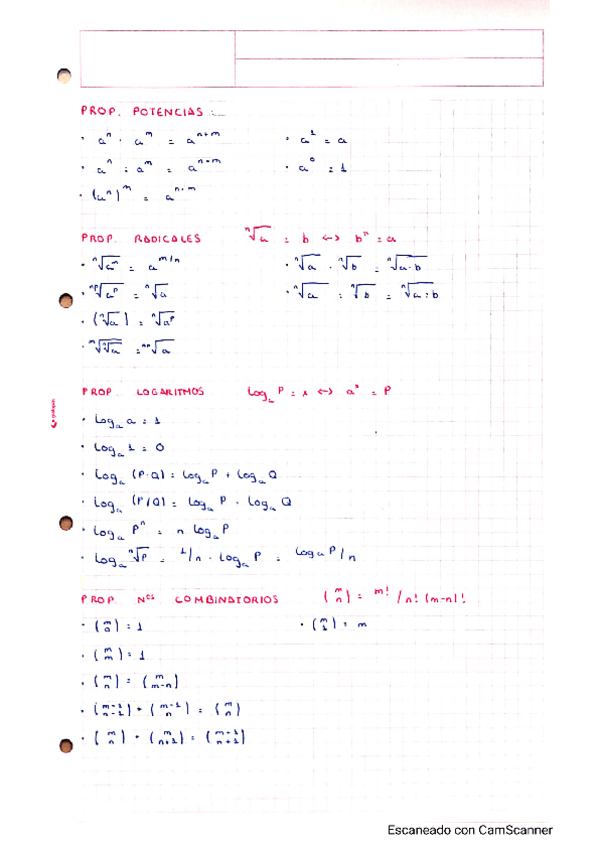 PROP. POTENCIAS:
· aⁿ · aᵐ = aⁿ⁺ᵐ · a¹ = a
· aⁿ : aᵐ = aⁿ⁻ᵐ · a⁰ = 1
· (aⁿ)ᵐ = aⁿ·ᵐ
PROP. RADICALES ⁿ√a = b ↔ bⁿ = a
· ⁿ√aᵐ = a^m/n · ⁿ√a · ⁿ√b = ⁿ√a·b
· ⁿᵖ√aᵖ = ⁿ√a · ⁿ√a : ⁿ√b = ⁿ√a:b
· (ⁿ√a) = ⁿ√aᵖ
PROP. LOGARITMOS logₐ P = x ↔ aˣ = P
· logₐ a = 1
· logₐ 1 = 0
· logₐ (P·Q) = logₐ P + logₐ Q
· logₐ (P/Q) = logₐ P - logₐ Q
· logₐ Pⁿ = n logₐ P
· logₐ ⁿ√P = 1/n · logₐ P = logₐ P/n
PROP. Nᵒˢ COMBINATORIOS (m n) = m! / n! (m-n)!
· (m 0) = 1 · (m 1) = m
· (m m) = 1
· (m n) = (m m-n)
· (m-1 n-1) + (m-1 n) = (m n)
· (m n) + (m n+1) = (m+1 n+1)
Escaneado con CamScanner